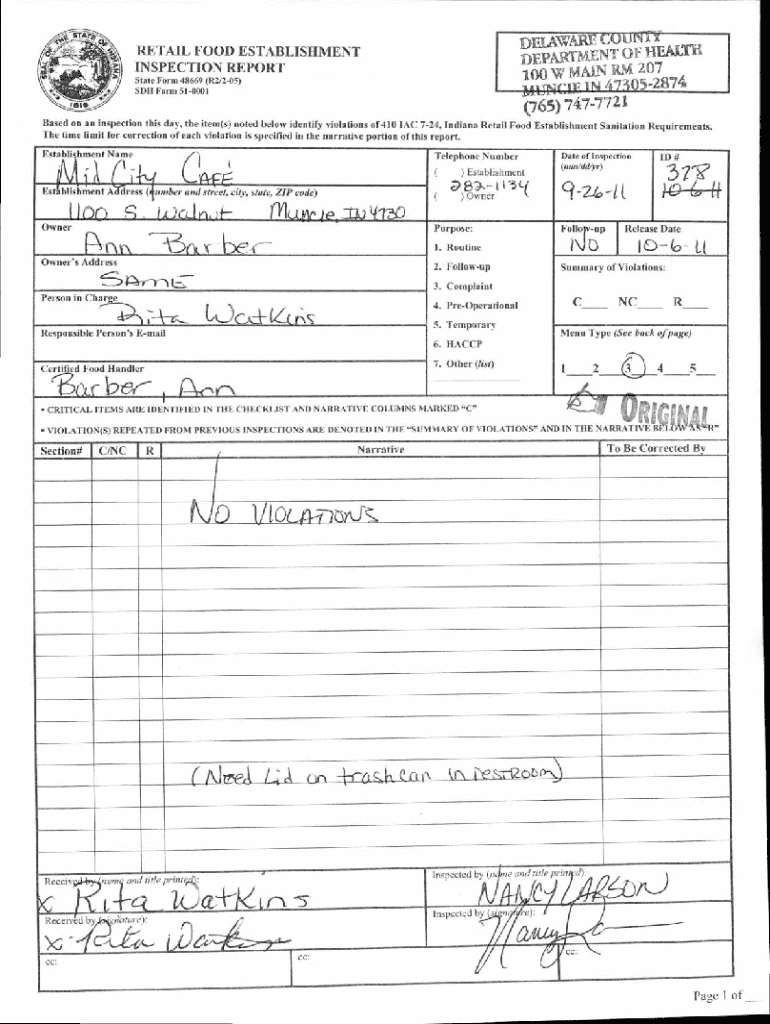 RETAIL FOOD ESTABLISHMENT
INSPECTION REPORT
State Form 48669 (R2/2-05)
SDH Form 51-0001
SEAL OF THE STATE OF INDIANA
1816
DELAWARE COUNTY
DEPARTMENT OF HEALTH
100 W MAIN RM 207
MUNCIE IN 47305-2874
(765) 747-7721
Based on an inspection this day, the item(s) noted below identify violations of 410 IAC 7-24, Indiana Retail Food Establishment Sanitation Requirements.
The time limit for correction of each violation is specified in the narrative portion of this report.
Establishment Name
Mid City CAFÉ
Telephone Number
( ) Establishment
282-1134
( ) Owner
Date of Inspection
(mm/dd/yr)
9-26-11
ID #
378
10-6-11
Establishment Address (number and street, city, state, ZIP code)
1100 S. Walnut Muncie, IN 4730
Owner
Ann Barber
Purpose:
1. Routine
2. Follow-up
3. Complaint
4. Pre-Operational
5. Temporary
6. HACCP
7. Other (list)
Follow-up
NO
Release Date
10-6-11
Owner's Address
SAME
Summary of Violations:
C___ NC___ R___
Person in Charge
Rita Watkins
Responsible Person's E-mail
Menu Type (See back of page)
1___2___3___4___5___
Certified Food Handler
Barber, Ann
ORIGINAL
• CRITICAL ITEMS ARE IDENTIFIED IN THE CHECKLIST AND NARRATIVE COLUMNS MARKED "C"
• VIOLATION(S) REPEATED FROM PREVIOUS INSPECTIONS ARE DENOTED IN THE "SUMMARY OF VIOLATIONS" AND IN THE NARRATIVE BELOW AS "R"
Section# C/NC R Narrative To Be Corrected By
NO VIOLATIONS
(Need Lid on trashcan in RESTROOM)
Received by (name and title printed):
x Rita Watkins
Inspected by (name and title printed):
NANCY LARSON
Received by (signature):
x Rita Watkins
Inspected by (signature):
Nancy
cc:
cc:
cc:
Page 1 of __